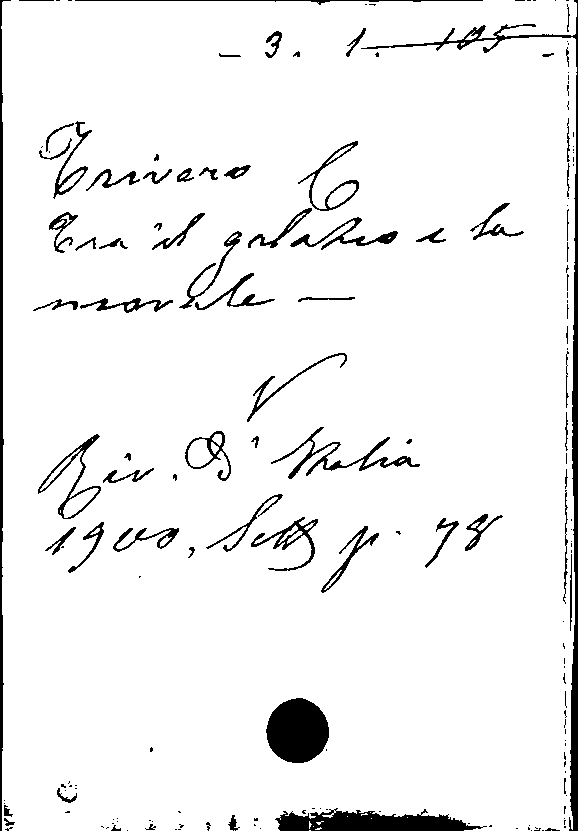 - 3. 1. 105 -
Trivero C
Tra il galateo e la
morale —
V
Riv. D'Italia
1900, Sett p. 78